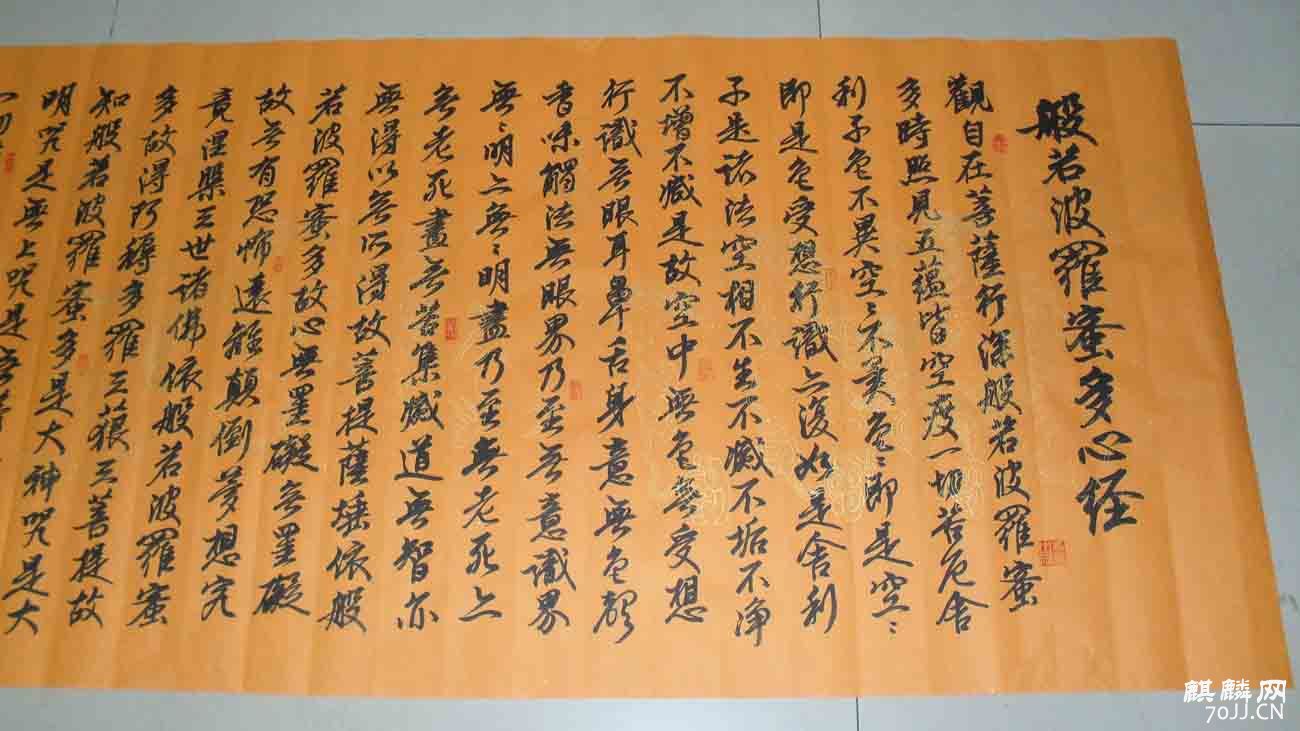 般若波羅蜜多心经
觀自在菩薩行深般若波羅蜜
多時照見五蘊皆空度一切苦厄舍
利子色不異空〻不異色〻即是空〻
即是色受想行識亦復如是舍利
子是诸法空相不生不滅不垢不净
不增不减是故空中無色無受想
行識无眼耳鼻舌身意無色聲
香味觸法無眼界乃至无意識界
無〻明亦無〻明盡乃至無老死亦
无老死盡无苦集滅道无智亦
無得以无所得故菩提薩埵依般
若波羅蜜多故心無罣礙无罣礙
故无有恐怖遠離顛倒夢想究
竟涅槃三世诸佛依般若波羅蜜
多故得阿耨多羅三藐三菩提故
知般若波羅蜜多是大神咒是大
明咒是無上咒是无等
一切
麒麟网
70JJ.CN